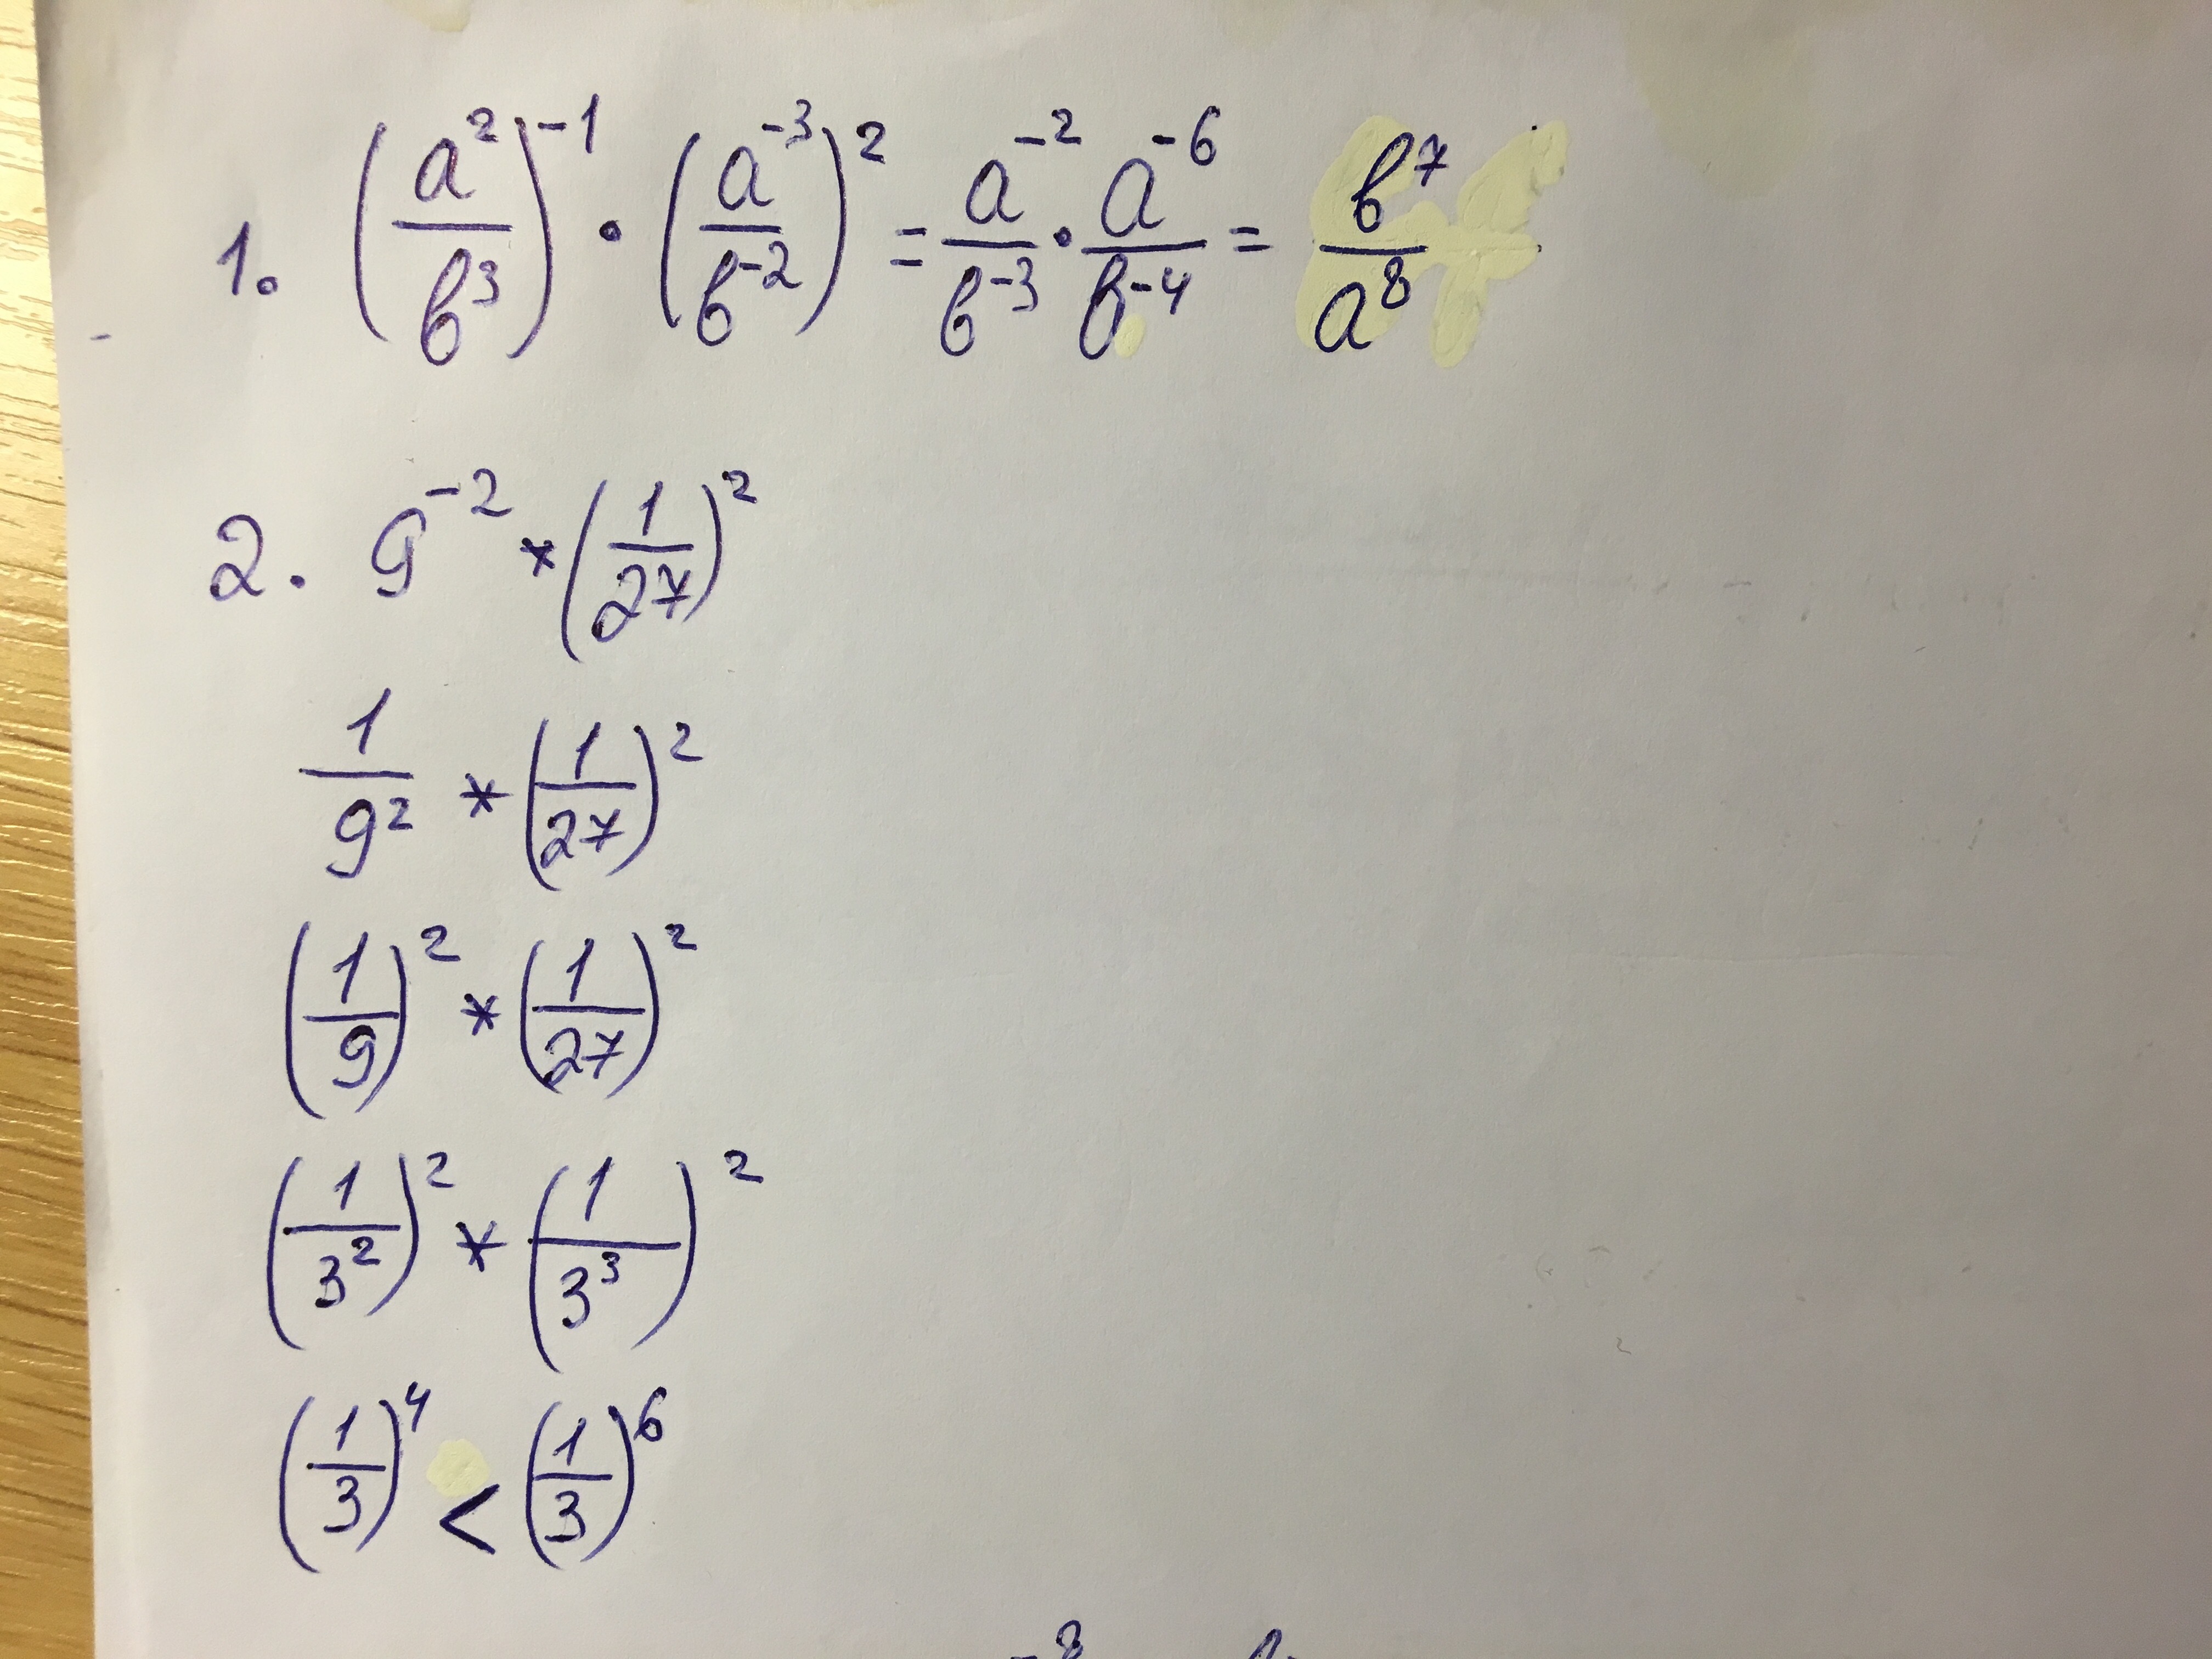 1. (a²/b³)⁻¹ · (a⁻³/b⁻²)² = a⁻²/b⁻³ · a⁻⁶/b⁻⁴ = b⁷/a⁸
2. 9⁻² * (1/27)²
1/9² * (1/27)²
(1/9)² * (1/27)²
(1/3²)² * (1/3³)²
(1/3)⁴ < (1/3)⁶